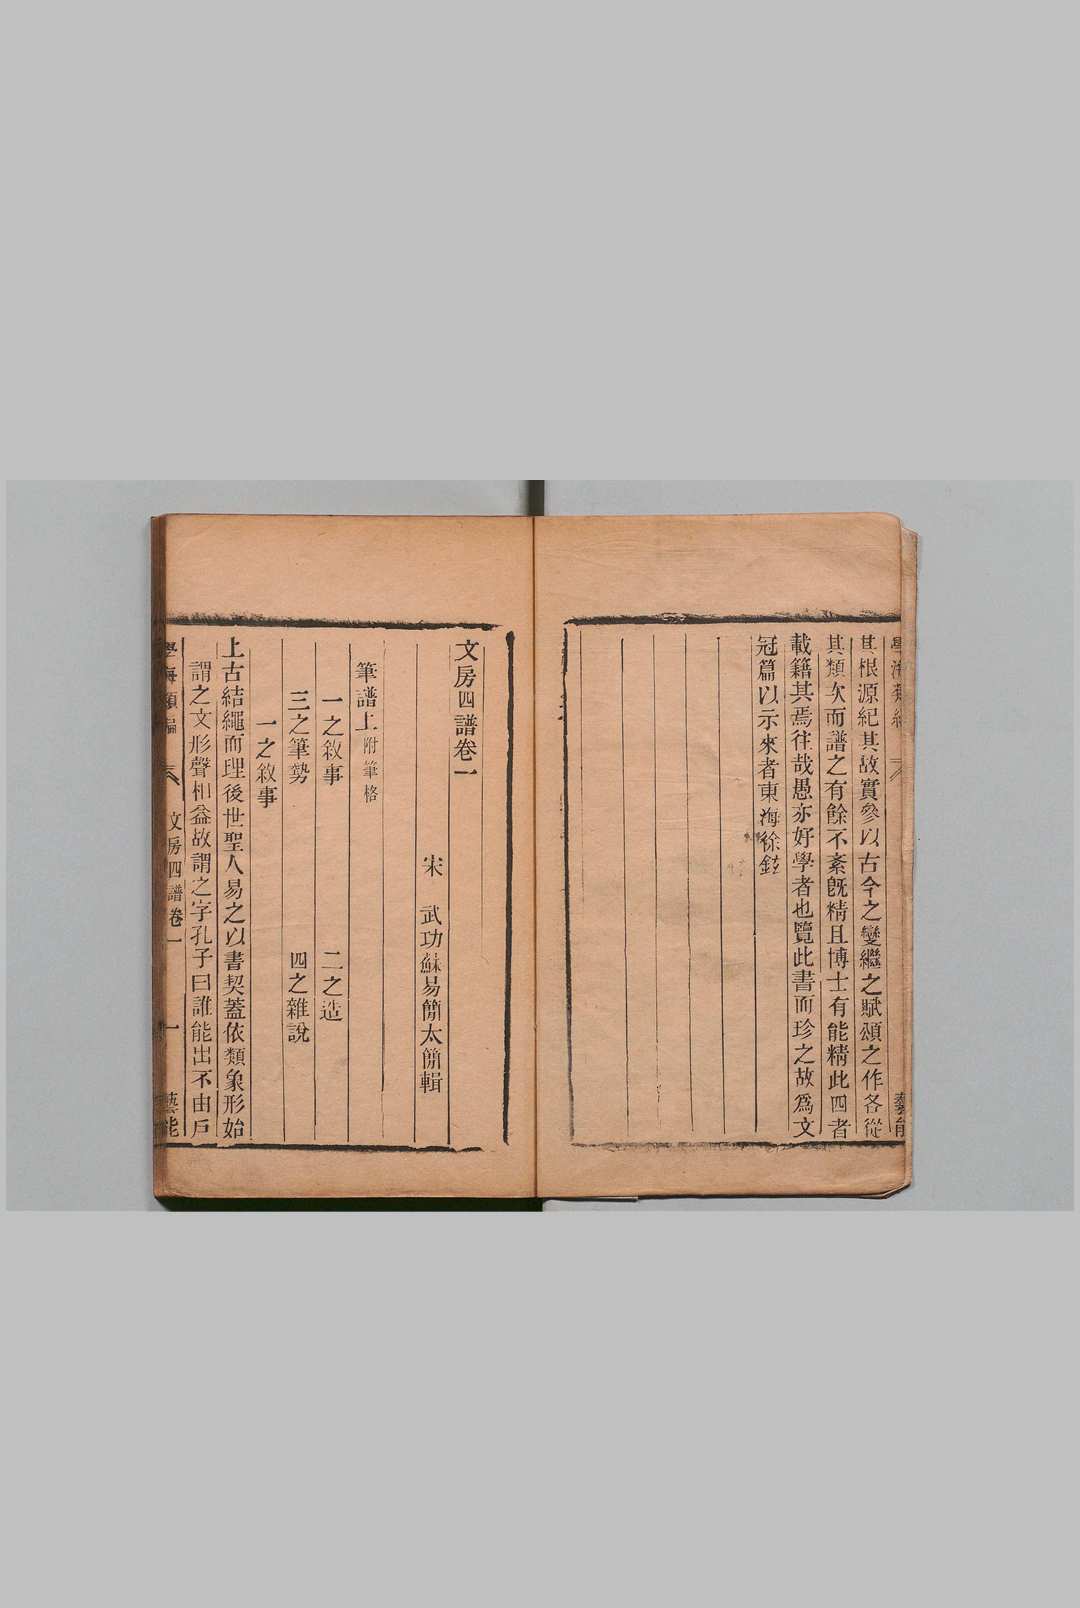 其根源紀其故實參以古今之變繼之賦頌之作各從
其類次而譜之有餘不紊旣精且博士有能精此四者
載籍其焉往哉愚亦好學者也覽此書而珍之故爲文
冠篇以示來者東海徐鉉
文房四譜卷一
宋 武功蘇易簡太簡輯
筆譜上附筆格
一之敘事 二之造
三之筆勢 四之雜說
一之敘事
上古結繩而理後世聖人易之以書契蓋依類象形始
謂之文形聲相益故謂之字孔子曰誰能出不由戶
學海類編 文房四譜卷一 一 藝能